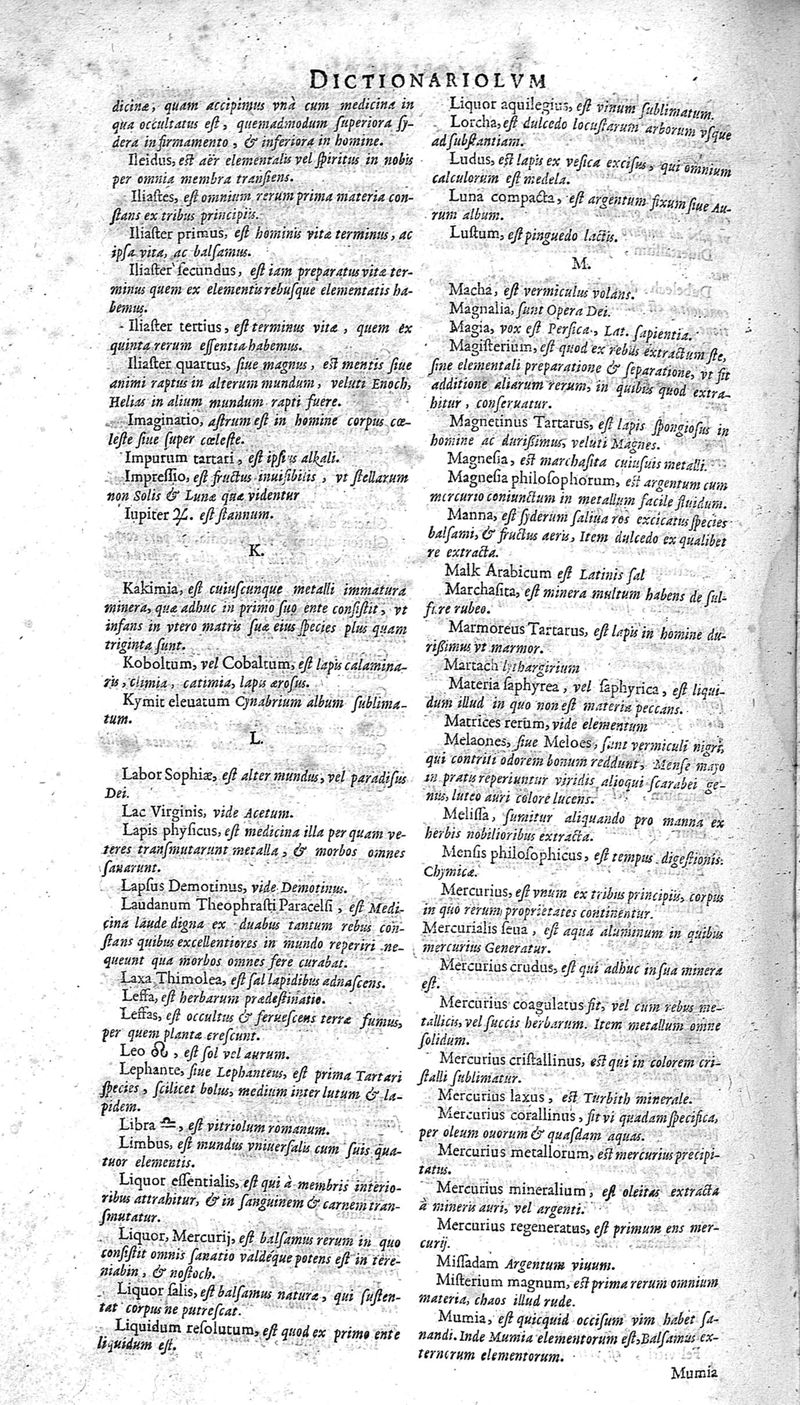 DICTIONARIOLVM
dicinæ, quam accipimus vnà cum medicina in
qua occultatus est, quemadmodum superiora sy-
dera in firmamento, & inferiora in homine.
Ileidus, est aër elementalis vel spiritus in nobis
per omnia membra transiens.
Iliastes, est omnium rerum prima materia con-
stans ex tribus principiis.
Iliaster primus, est hominis vitæ terminus, ac
ipsa vita, ac balsamus.
Iliaster secundus, est iam preparatus vitæ ter-
minus quem ex elementis rebusque elementatis ha-
bemus.
Iliaster tertius, est terminus vitæ, quem ex
quinta rerum essentia habemus.
Iliaster quartus, siue magnus, est mentis siue
animi raptus in alterum mundum, veluti Enoch,
Helias in alium mundum rapti fuere.
Imaginatio, astrum est in homine corpus cœ-
leste siue super cœleste.
Impurum tartari, est ipsius alkali.
Impressio, est fructus inuisibilis, vt stellarum
non Solis & Lunæ quæ videntur
Iupiter ♃. est stannum.
K.
Kakimia, est cuiuscunque metalli immatura
minera, quæ adhuc in primo suo ente consistit, vt
infans in vtero matris suæ eius species plus quam
triginta sunt.
Koboltum, vel Cobaltum, est lapis calamina-
ris, climia, catimia, lapis ærosus.
Kymit eleuatum Cynabrium album sublima-
tum.
L.
Labor Sophiæ, est alter mundus, vel paradisus
Dei.
Lac Virginis, vide Acetum.
Lapis physicus, est medicina illa per quam ve-
teres transmutarunt metalla, & morbos omnes
sanarunt.
Lapsus Demotinus, vide Demotinus.
Laudanum Theophrasti Paracelsi, est Medi-
cina laude digna ex duabus tantum rebus con-
stans quibus excellentiores in mundo reperiri ne-
queunt qua morbos omnes fere curabat.
Laxa Thimolea, est sal lapidibus adnascens.
Lessa, est herbarum prædestinatio.
Leffas, est occultus & feruescens terræ fumus,
per quem plantæ crescunt.
Leo ♌, est sol vel aurum.
Lephante, siue Lephanteus, est prima Tartari
species, scilicet bolus, medium inter lutum & la-
pidem.
Libra ♎, est vitriolum romanum.
Limbus, est mundus vniuersalis cum suis qua-
tuor elementis.
Liquor essentialis, est qui à membris interio-
ribus attrahitur, & in sanguinem & carnem tran-
smutatur.
Liquor, Mercurij, est balsamus rerum in quo
consistit omnis sanatio valdéque potens est in tere-
niabin, & nostoch.
Liquor salis, est balsamus naturæ, qui susten-
tat corpus ne putrescat.
Liquidum resolutum, est quod ex primo ente
liquidum est.
Liquor aquilegius, est vinum sublimatum.
Lorcha, est dulcedo locustarum arborum vsque
ad substantiam.
Ludus, est lapis ex vesica excisus, qui omnium
calculorum est medela.
Luna compacta, est argentum fixum siue Au-
rum album.
Lustum, est pinguedo lactis.
M.
Macha, est vermiculus volans.
Magnalia, sunt Opera Dei.
Magia, vox est Persica, Lat. sapientia.
Magisterium, est quod ex rebus extractum ste,
sine elementali preparatione & separatione, vt sit
additione aliarum rerum, in quibus quod extra-
hitur, conseruatur.
Magnetinus Tartarus, est lapis spongiosus in
homine ac durissimus, veluti Magnes.
Magnesia, est marchasita cuiusuis metalli.
Magnesia philosophorum, est argentum cum
mercurio coniunctum in metallum facile fluidum.
Manna, est syderum saliua ros excicatus species
balsami, & fructus aeris, Item dulcedo ex qualibet
re extracta.
Malk Arabicum est Latinis sal
Marchasita, est minera multum habens de sul-
fure rubeo.
Marmoreus Tartarus, est lapis in homine du-
rissimus vt marmor.
Martach lythargirium
Materia saphyrea, vel saphyrica, est liqui-
dum illud in quo non est materia peccans.
Matrices rerum, vide elementum
Melaones, siue Meloes, sunt vermiculi nigri,
qui contriti odorem bonum reddunt, Mense mayo
in pratis reperiuntur viridis alioqui scarabei ge-
nus, luteo auri colore lucens.
Melissa, sumitur aliquando pro manna ex
herbis nobilioribus extracta.
Mensis philosophicus, est tempus digestionis
Chymicæ.
Mercurius, est vnum ex tribus principiis, corpus
in quo rerum proprietates continentur.
Mercurialis seua, est aqua aluminum in quibus
mercurius Generatur.
Mercurius crudus, est qui adhuc in sua minera
est.
Mercurius coagulatus fit, vel cum rebus me-
tallicis, vel succis herbarum. Item metallum omne
solidum.
Mercurius cristallinus, est qui in colorem cri-
stalli sublimatur.
Mercurius laxus, est Turbith minerale.
Mercurius corallinus, fit vi quadam specifica,
per oleum ouorum & quasdam aquas.
Mercurius metallorum, est mercurius precipi-
tatus.
Mercurius mineralium, est oleitas extracta
à mineris auri, vel argenti.
Mercurius regeneratus, est primum ens mer-
curij.
Missadam Argentum viuum.
Misterium magnum, est prima rerum omnium
materia, chaos illud rude.
Mumia, est quicquid occisum vim habet sa-
nandi. Inde Mumia elementorum est, Balsamus ex-
ternorum elementorum.
Mumia